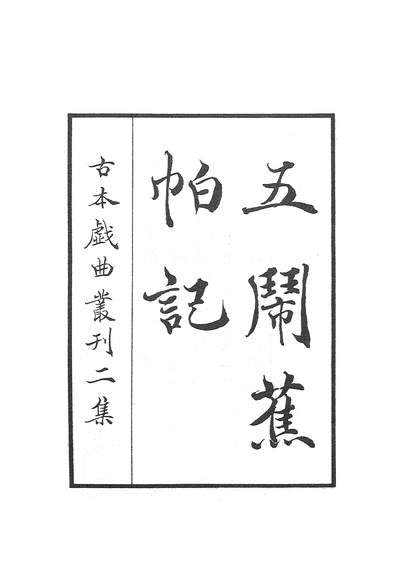 五鬧蕉
帕記
古本戯曲叢刊二集